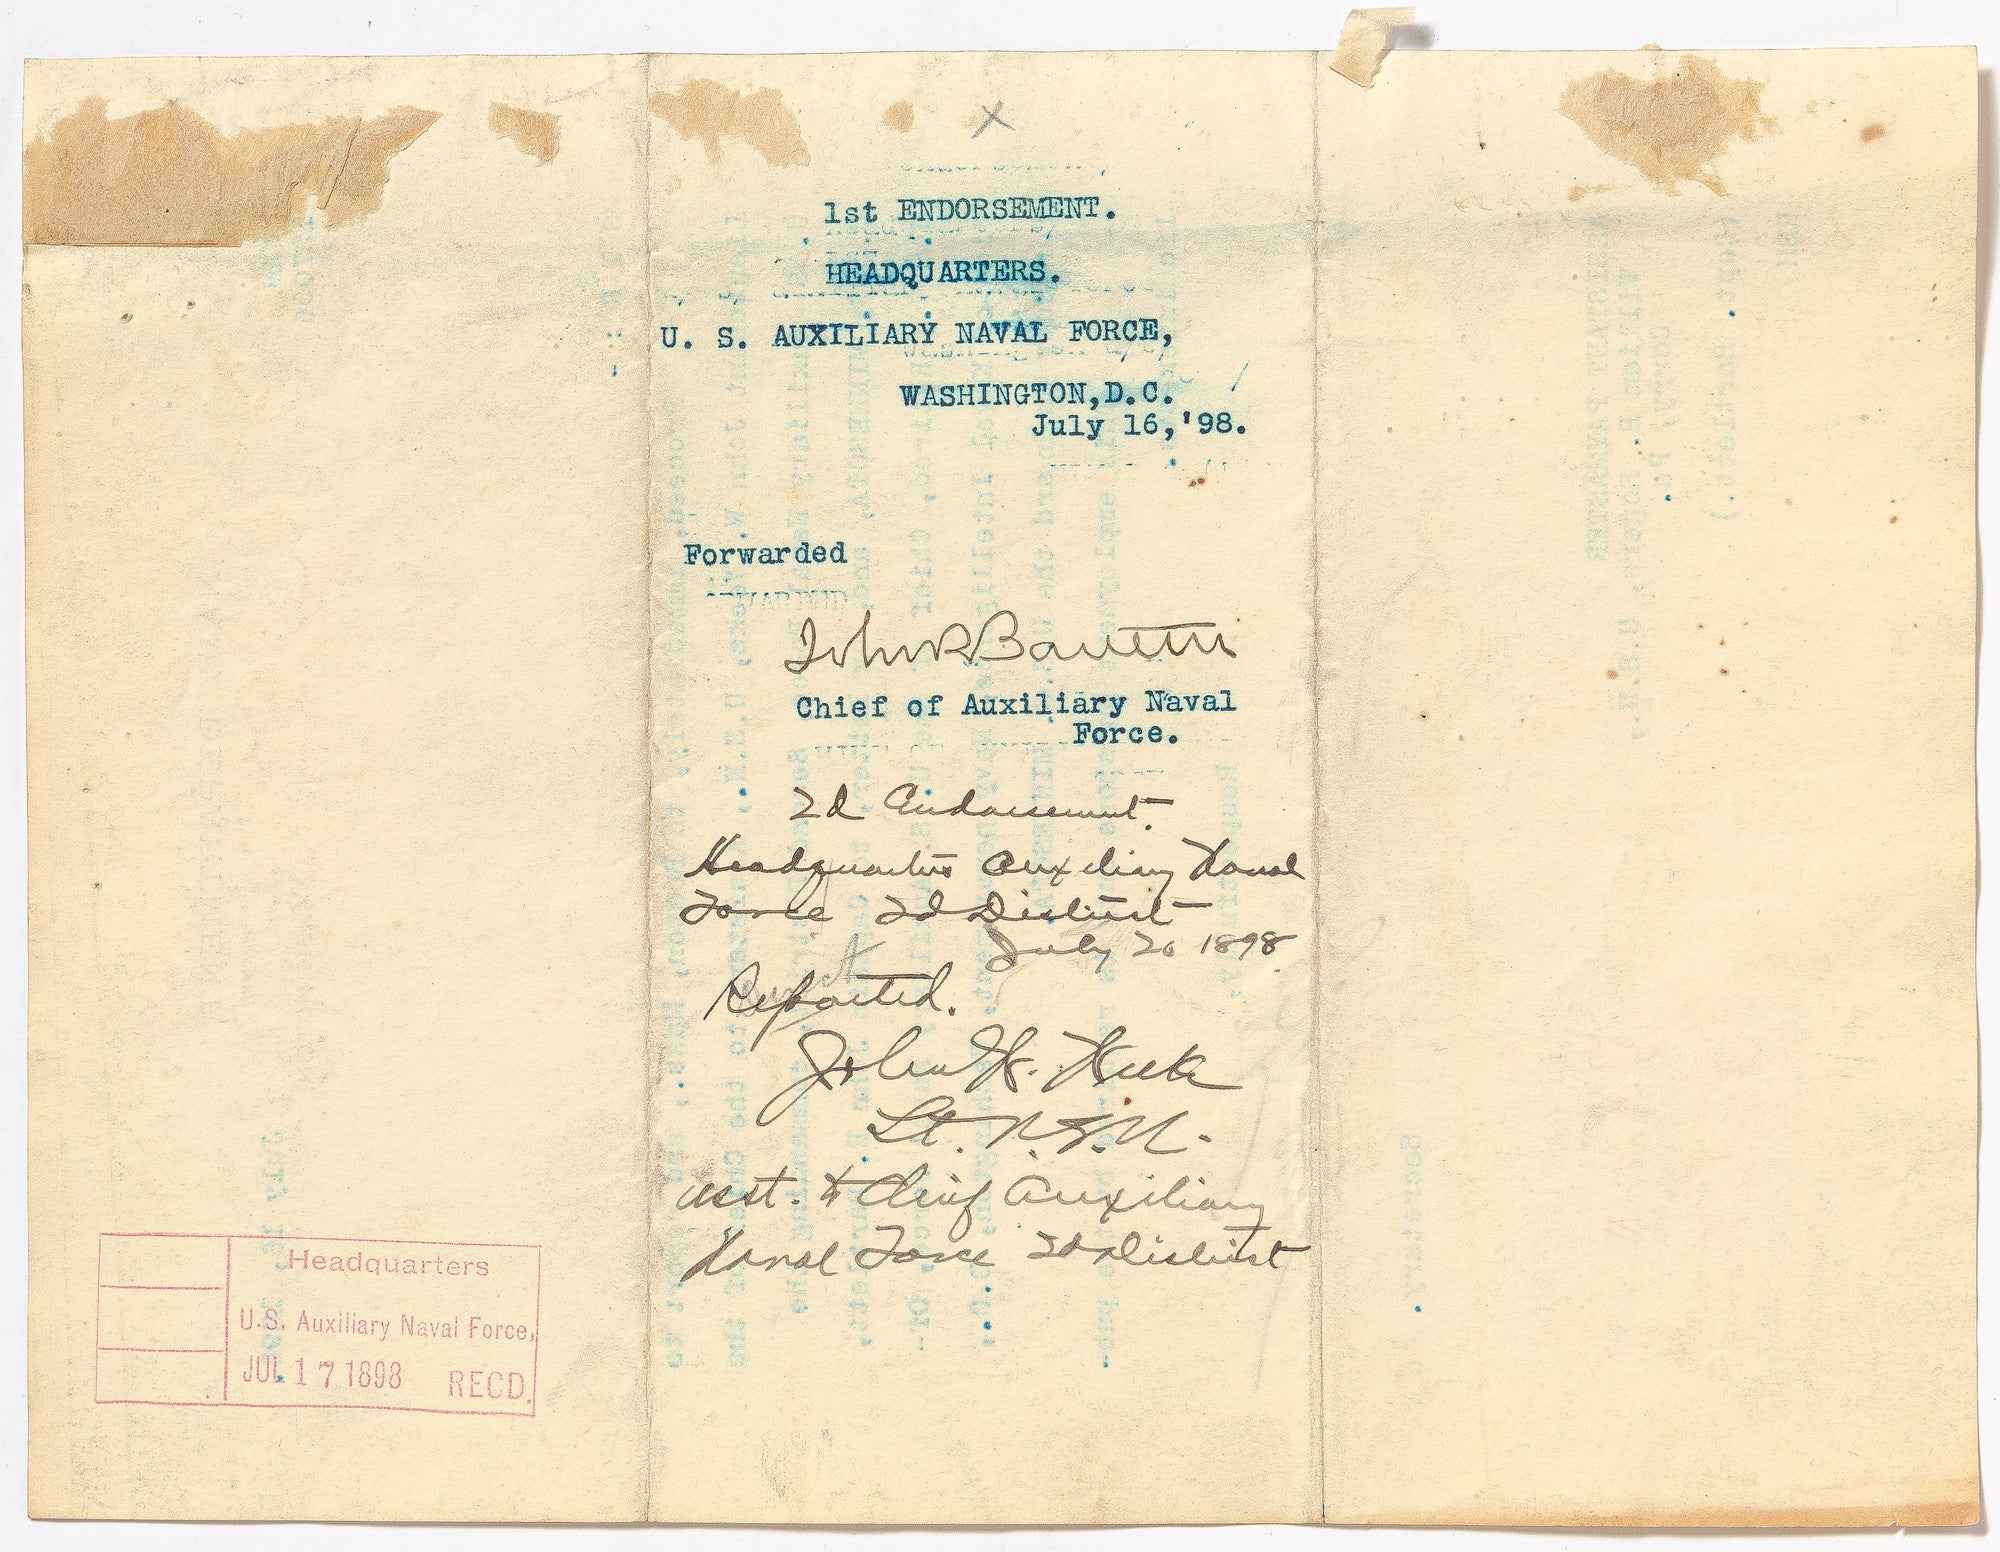 1st ENDORSEMENT.
HEADQUARTERS.
U. S. AUXILIARY NAVAL FORCE,
WASHINGTON,D.C.
July 16,'98.
Forwarded
John R Bartlett
Chief of Auxiliary Naval
Force.
2d Endorsement.
Headquarters Auxiliary Naval
Force 2d District
July 20 1898
Reported.
John W. Weeks
Lt. U.S.N.
asst. to Chief Auxiliary
Naval Force 2d District
Headquarters
U.S. Auxiliary Naval Force,
JUL 17 1898 RECD.